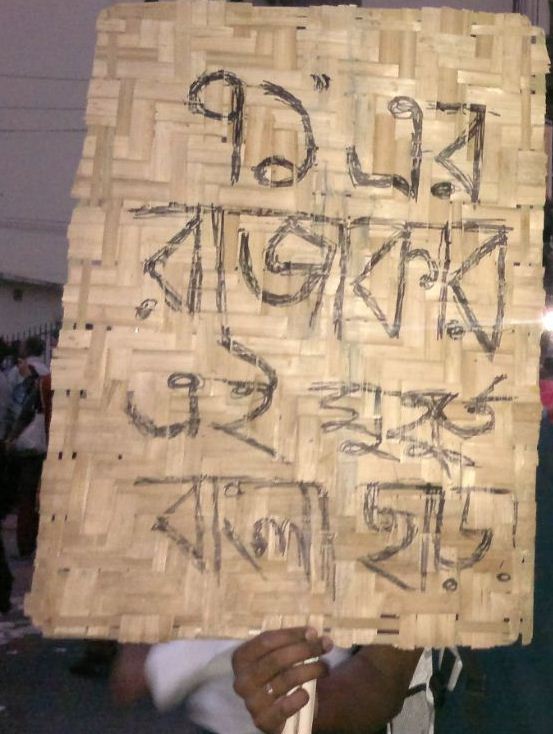 ৭১" এর
রাজাকার
এই মুহুর্ত
বাংলা ছাড়